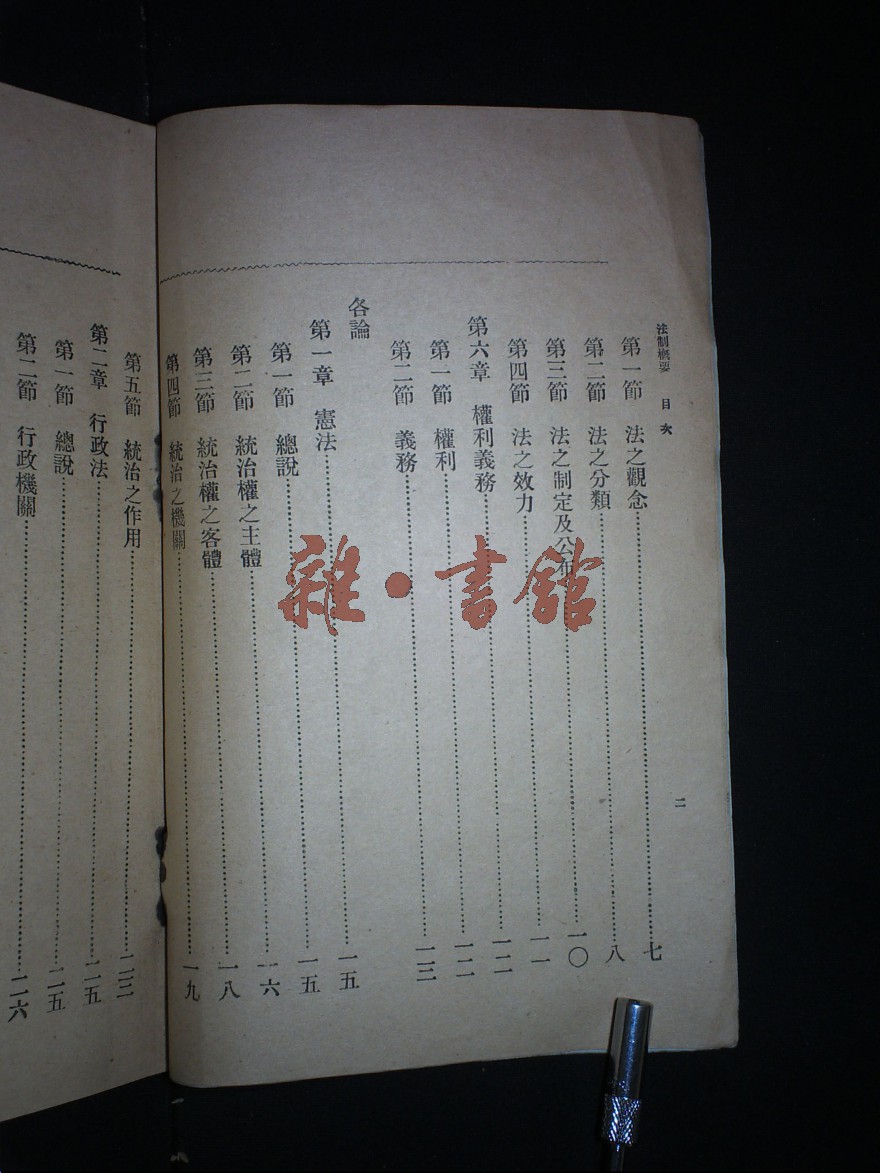 法制概要 目次
第一節 法之觀念……七
第二節 法之分類……八
第三節 法之制定及公布……一〇
第四節 法之效力……一一
第六章 權利義務……一二
第一節 權利……一二
第二節 義務……一三
各論
第一章 憲法……一五
第一節 總說……一五
第二節 統治權之主體……一六
第三節 統治權之客體……一八
第四節 統治之機關……一九
二
第五節 統治之作用……二三
第二章 行政法……二五
第一節 總說……二五
第二節 行政機關……二六
雜·書館